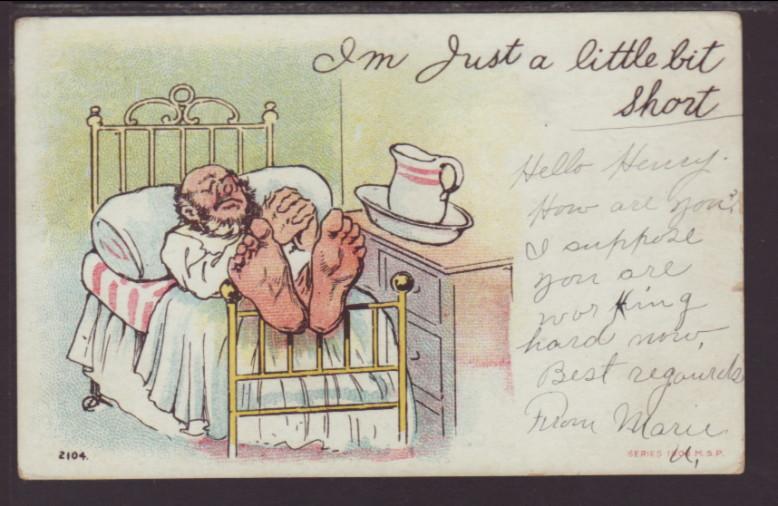 I'm Just a little bit
short
Hello Henry.
How are you?
I suppose
you are
working
hard now,
Best regards
From Marie
U,
2104.
SERIES M.S.P.